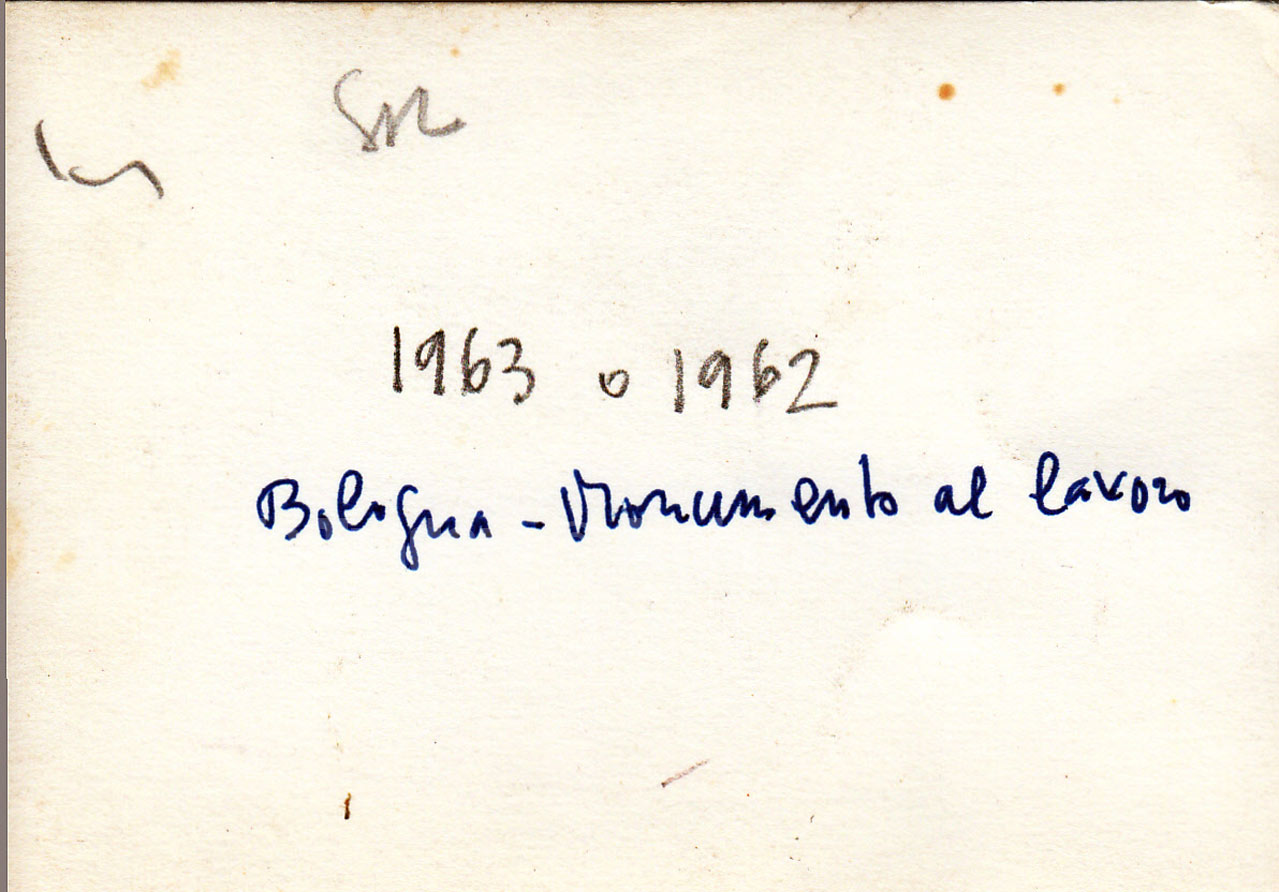 1963 o 1962
Bologna - Monumento al lavoro